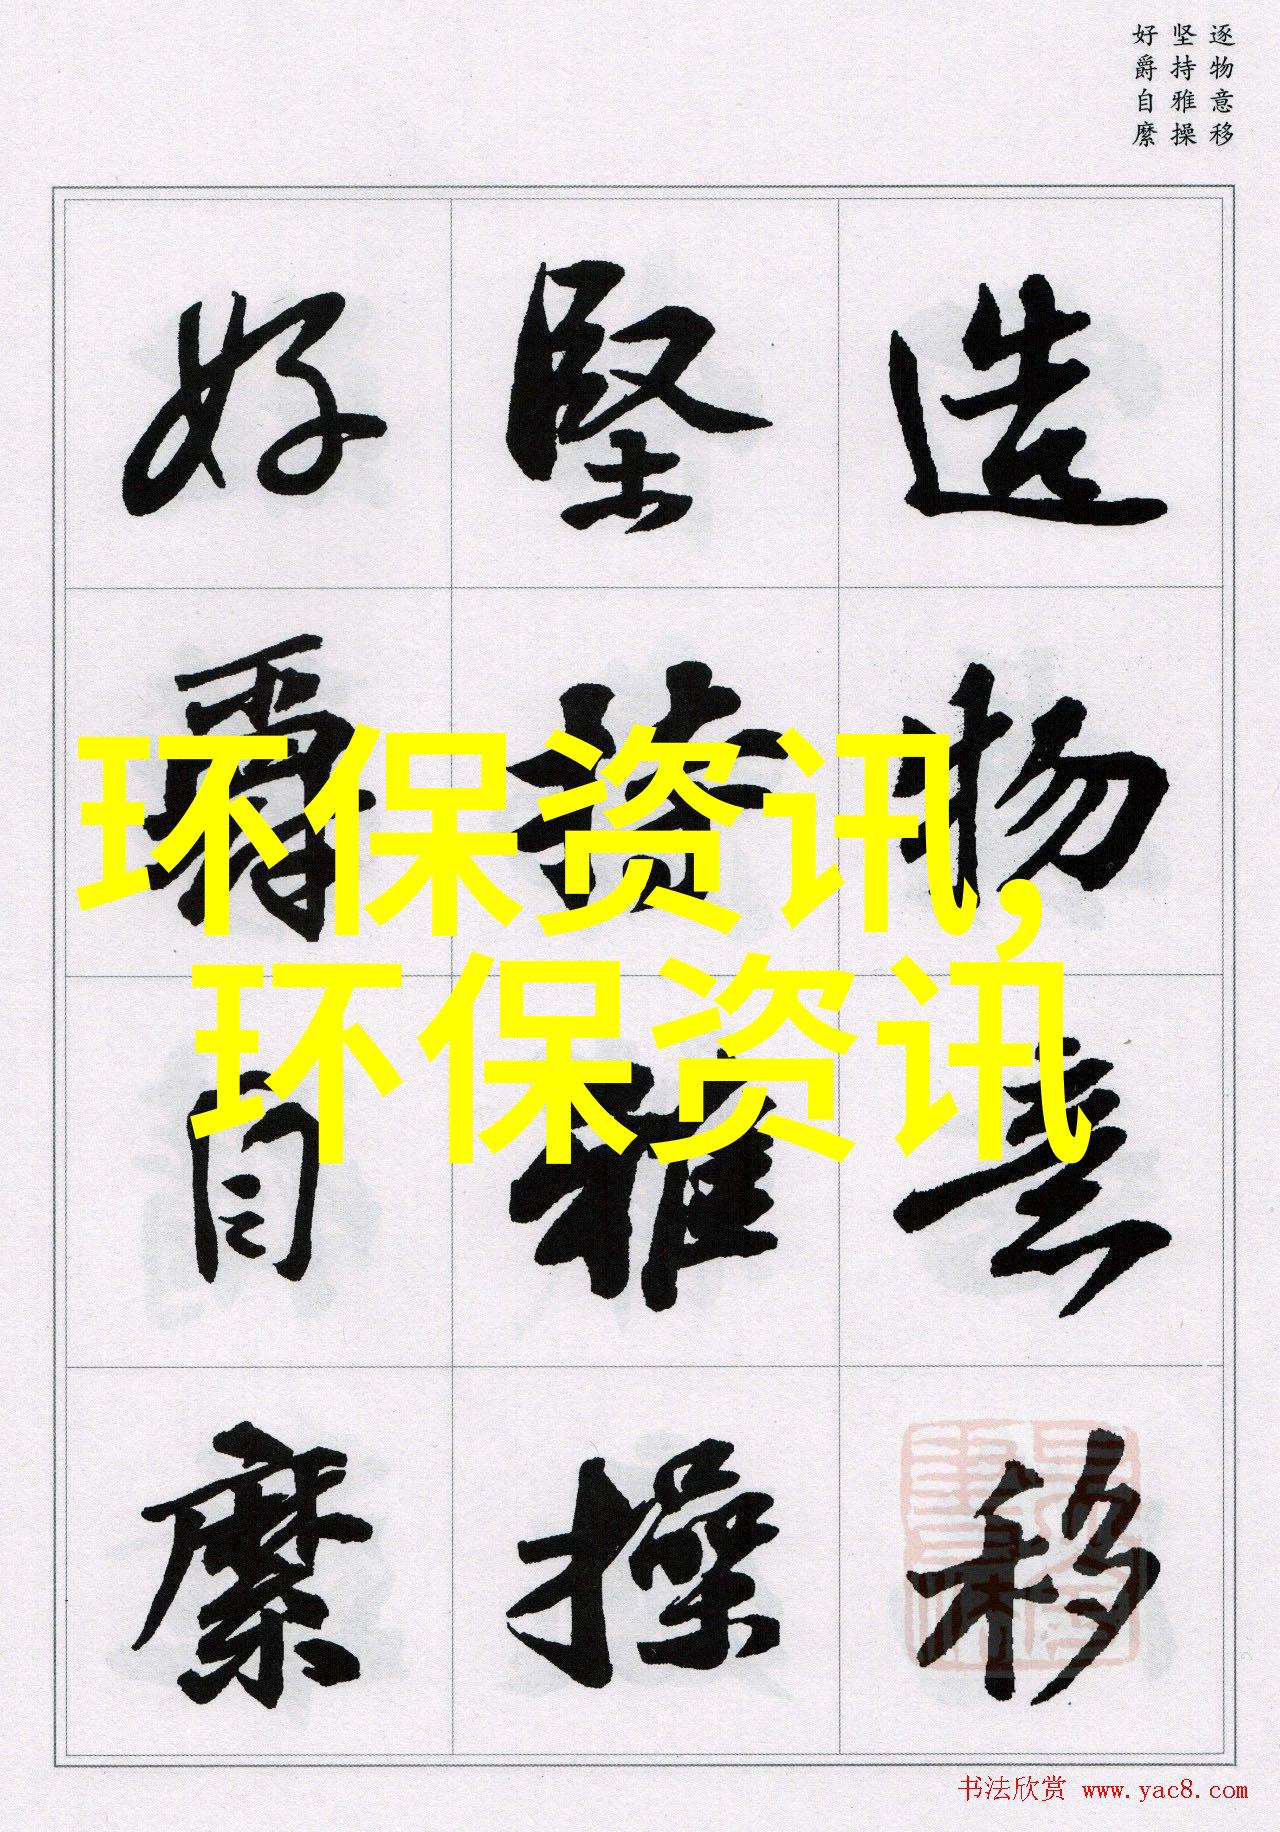 逐物意移
坚持雅操
好爵自縻
造物意移
堅持雅操
好爵自縻
环保资讯,
环保资讯
书法欣赏 www.yac8.com